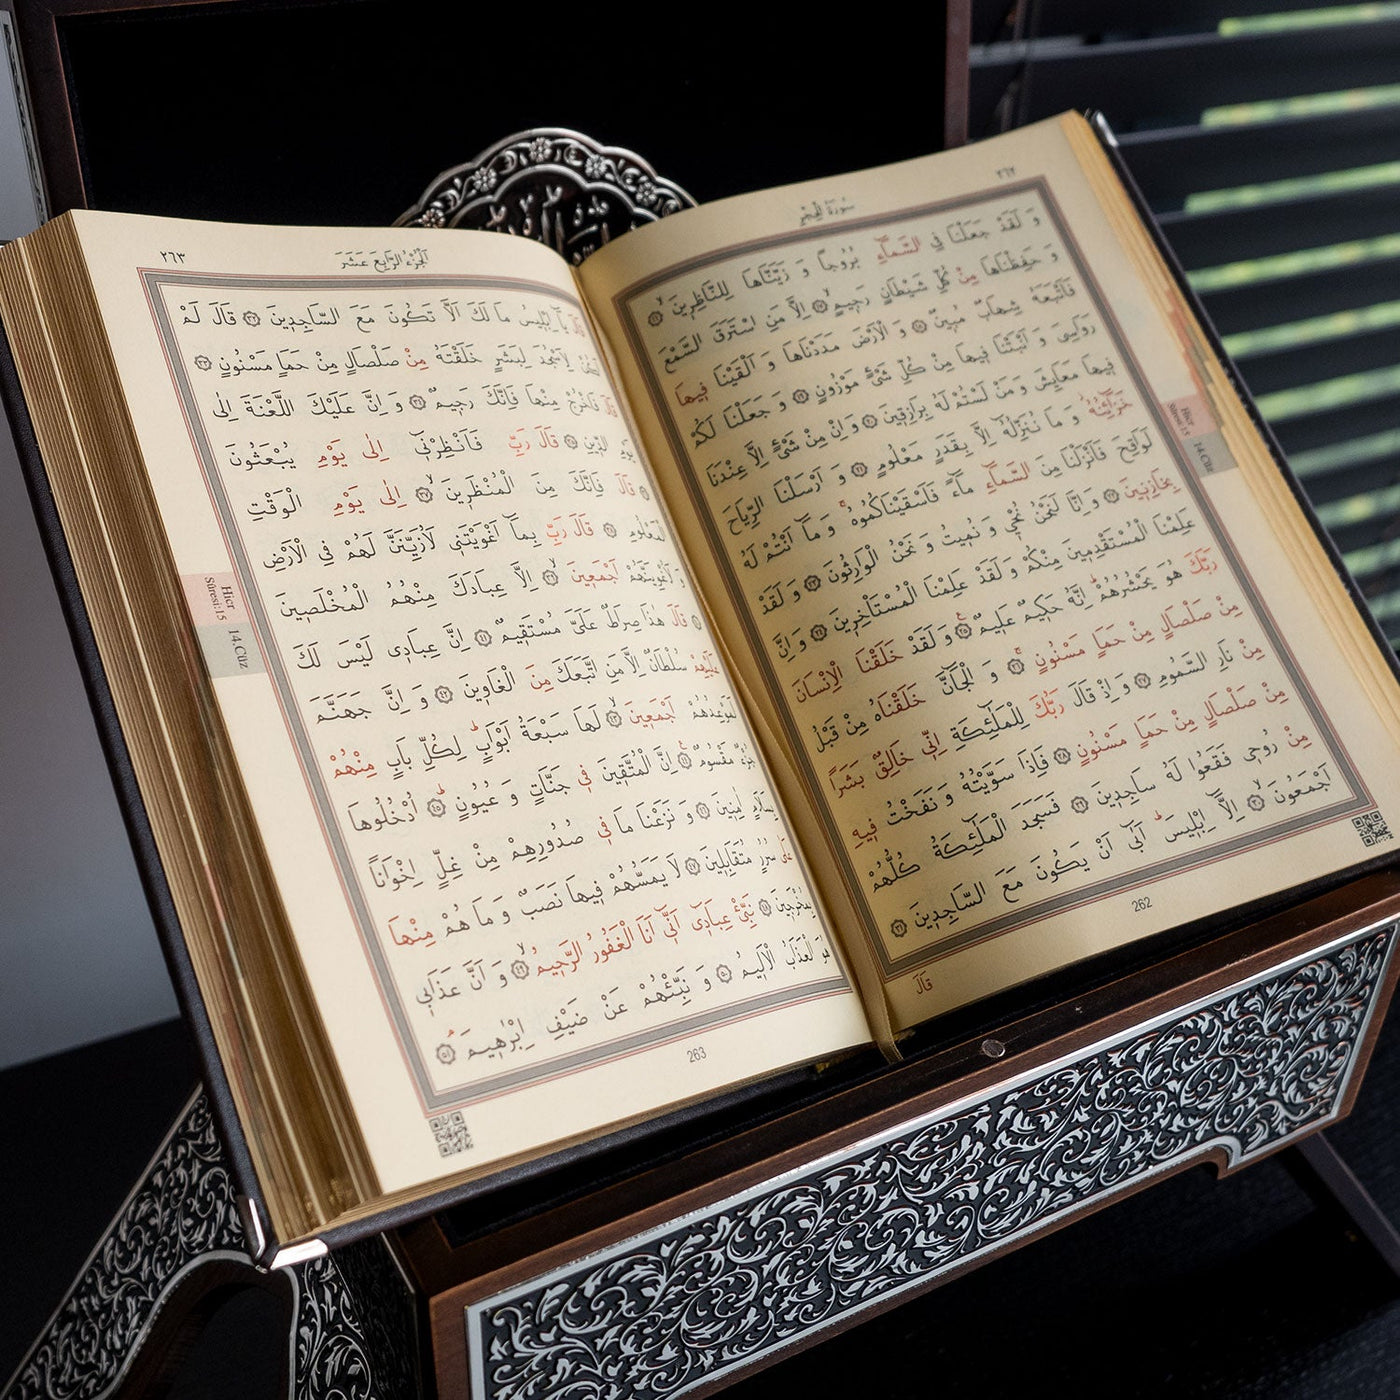 ٢٦٢
سُورَةُ الْحِجْرِ
وَ لَقَدْ جَعَلْنَا فِي السَّمَٓاءِ بُرُوجاً وَ زَيَّنَّاهَا لِلنَّاظِرِينَ ۙ ﴿١٦﴾
وَ حَفِظْنَاهَا مِنْ كُلِّ شَيْطَانٍ رَجِيمٍ ۙ ﴿١٧﴾ اِلَّا مَنِ اسْتَرَقَ السَّمْعَ
فَاَتْبَعَهُ شِهَابٌ مُبِينٌ ﴿١٨﴾ وَ الْاَرْضَ مَدَدْنَاهَا وَ اَلْقَيْنَا فِيهَا
رَوَاسِيَ وَ اَنْبَتْنَا فِيهَا مِنْ كُلِّ شَيْءٍ مَوْزُونٍ ﴿١٩﴾ وَ جَعَلْنَا لَكُمْ
فِيهَا مَعَايِشَ وَ مَنْ لَسْتُمْ لَهُ بِرَازِقِينَ ﴿٢٠﴾ وَ اِنْ مِنْ شَيْءٍ اِلَّا عِنْدَنَا
خَزَٓائِنُهُ وَ مَا نُنَزِّلُهُٓ اِلَّا بِقَدَرٍ مَعْلُومٍ ﴿٢١﴾ وَ اَرْسَلْنَا الرِّيَاحَ
لَوَاقِحَ فَاَنْزَلْنَا مِنَ السَّمَٓاءِ مَٓاءً فَاَسْقَيْنَاكُمُوهُ ۚ وَ مَٓا اَنْتُمْ لَهُ
بِخَازِنِينَ ﴿٢٢﴾ وَ اِنَّا لَنَحْنُ نُحْيِي وَ نُمِيتُ وَ نَحْنُ الْوَارِثُونَ ﴿٢٣﴾ وَ لَقَدْ
عَلِمْنَا الْمُسْتَقْدِمِينَ مِنْكُمْ وَ لَقَدْ عَلِمْنَا الْمُسْتَأْخِرِينَ ﴿٢٤﴾ وَ اِنَّ
رَبَّكَ هُوَ يَحْشُرُهُمْ ۜ اِنَّهُ حَكِيمٌ عَلِيمٌ ۟ ﴿٢٥﴾ وَ لَقَدْ خَلَقْنَا الْاِنْسَانَ
مِنْ صَلْصَالٍ مِنْ حَمَاٍ مَسْنُونٍ ۚ ﴿٢٦﴾ وَ الْجَٓانَّ خَلَقْنَاهُ مِنْ قَبْلُ
مِنْ نَارِ السَّمُومِ ﴿٢٧﴾ وَ اِذْ قَالَ رَبُّكَ لِلْمَلٰٓئِكَةِ اِنِّي خَالِقٌ بَشَراً
مِنْ صَلْصَالٍ مِنْ حَمَاٍ مَسْنُونٍ ﴿٢٨﴾ فَاِذَا سَوَّيْتُهُ وَ نَفَخْتُ فِيهِ
مِنْ رُوحِي فَقَعُوا لَهُ سَاجِدِينَ ﴿٢٩﴾ فَسَجَدَ الْمَلٰٓئِكَةُ كُلُّهُمْ
اَجْمَعُونَ ۙ ﴿٣٠﴾ اِلَّٓا اِبْلِيسَ ۜ اَبٰٓى اَنْ يَكُونَ مَعَ السَّاجِدِينَ ﴿٣١﴾
Hicr
Sûresi:15
14.Cüz
262
قَالَ
٢٦٣
اَلْجُزْءُ الرَّابِعَ عَشَرَ
قَالَ يَٓا اِبْلِيسُ مَا لَكَ اَلَّا تَكُونَ مَعَ السَّاجِدِينَ ﴿٣٢﴾ قَالَ لَمْ
اَكُنْ لِاَسْجُدَ لِبَشَرٍ خَلَقْتَهُ مِنْ صَلْصَالٍ مِنْ حَمَاٍ مَسْنُونٍ ﴿٣٣﴾
قَالَ فَاخْرُجْ مِنْهَا فَاِنَّكَ رَجِيمٌ ۙ ﴿٣٤﴾ وَ اِنَّ عَلَيْكَ اللَّعْنَةَ اِلٰى
يَوْمِ الدِّينِ ﴿٣٥﴾ قَالَ رَبِّ فَاَنْظِرْنِٓي اِلٰى يَوْمِ يُبْعَثُونَ
﴿٣٦﴾ قَالَ فَاِنَّكَ مِنَ الْمُنْظَرِينَ ۙ ﴿٣٧﴾ اِلٰى يَوْمِ الْوَقْتِ
الْمَعْلُومِ ﴿٣٨﴾ قَالَ رَبِّ بِمَٓا اَغْوَيْتَنِي لَاُزَيِّنَنَّ لَهُمْ فِي الْاَرْضِ
وَ لَاُغْوِيَنَّهُمْ اَجْمَعِينَ ۙ ﴿٣٩﴾ اِلَّا عِبَادَكَ مِنْهُمُ الْمُخْلَصِينَ
﴿٤٠﴾ قَالَ هٰذَا صِرَاطٌ عَلَيَّ مُسْتَقِيمٌ ﴿٤١﴾ اِنَّ عِبَادِي لَيْسَ لَكَ
عَلَيْهِمْ سُلْطَانٌ اِلَّا مَنِ اتَّبَعَكَ مِنَ الْغَاوِينَ ﴿٤٢﴾ وَ اِنَّ جَهَنَّمَ
لَمَوْعِدُهُمْ اَجْمَعِينَ ۙ ﴿٤٣﴾ لَهَا سَبْعَةُ اَبْوَابٍ ۜ لِكُلِّ بَابٍ مِنْهُمْ
جُزْءٌ مَقْسُومٌ ۟ ﴿٤٤﴾ اِنَّ الْمُتَّقِينَ فِي جَنَّاتٍ وَ عُيُونٍ ۜ ﴿٤٥﴾ اُدْخُلُوهَا
بِسَلَامٍ اٰمِنِينَ ﴿٤٦﴾ وَ نَزَعْنَا مَا فِي صُدُورِهِمْ مِنْ غِلٍّ اِخْوَاناً
عَلٰى سُرُرٍ مُتَقَابِلِينَ ﴿٤٧﴾ لَا يَمَسُّهُمْ فِيهَا نَصَبٌ وَ مَا هُمْ مِنْهَا
بِمُخْرَجِينَ ﴿٤٨﴾ نَبِّئْ عِبَادِٓي اَنِّٓي اَنَا الْغَفُورُ الرَّحِيمُ ۙ ﴿٤٩﴾ وَ اَنَّ عَذَابِي
هُوَ الْعَذَابُ الْاَلِيمُ ﴿٥٠﴾ وَ نَبِّئْهُمْ عَنْ ضَيْفِ اِبْرٰهِيمَ ۢ ﴿٥١﴾
Hicr
Sûresi:15
14.Cüz
263